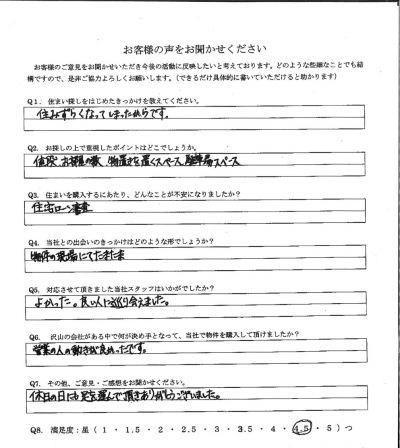 お客様の声をお聞かせください
お客様のご意見をお聞かせいただき今後の活動に反映したいと考えております。どのような些細なことでも結
構ですので、是非ご協力よろしくお願いします。(できるだけ具体的に書いていただけると助かります)
Q1. 住まい探しをはじめたきっかけを教えてください。
住みずらくなってしまったからです。
Q2. お探しの上で重視したポイントはどこでしょうか。
値段、お部屋の数、物置きを置くスペース、駐車場スペース
Q3. 住まいを購入するにあたり、どんなことが不安になりましたか?
住宅ローン審査
Q4. 当社との出会いのきっかけはどのような形でしょうか?
物件の現場にてたまたま
Q5. 対応させて頂きました当社スタッフはいかがでしたか?
よかった。良い人に巡り会えました。
Q6. 沢山の会社がある中で何が決め手となって、当社で物件を購入して頂けましたか?
営業の人の動きが良かったです。
Q7. その他、ご意見・ご感想をお聞かせください。
休日の日にも足を運んで頂きありがとうございました。
Q8. 満足度:星(1・1.5・2・2.5・3・3.5・4・4.5・5)つ